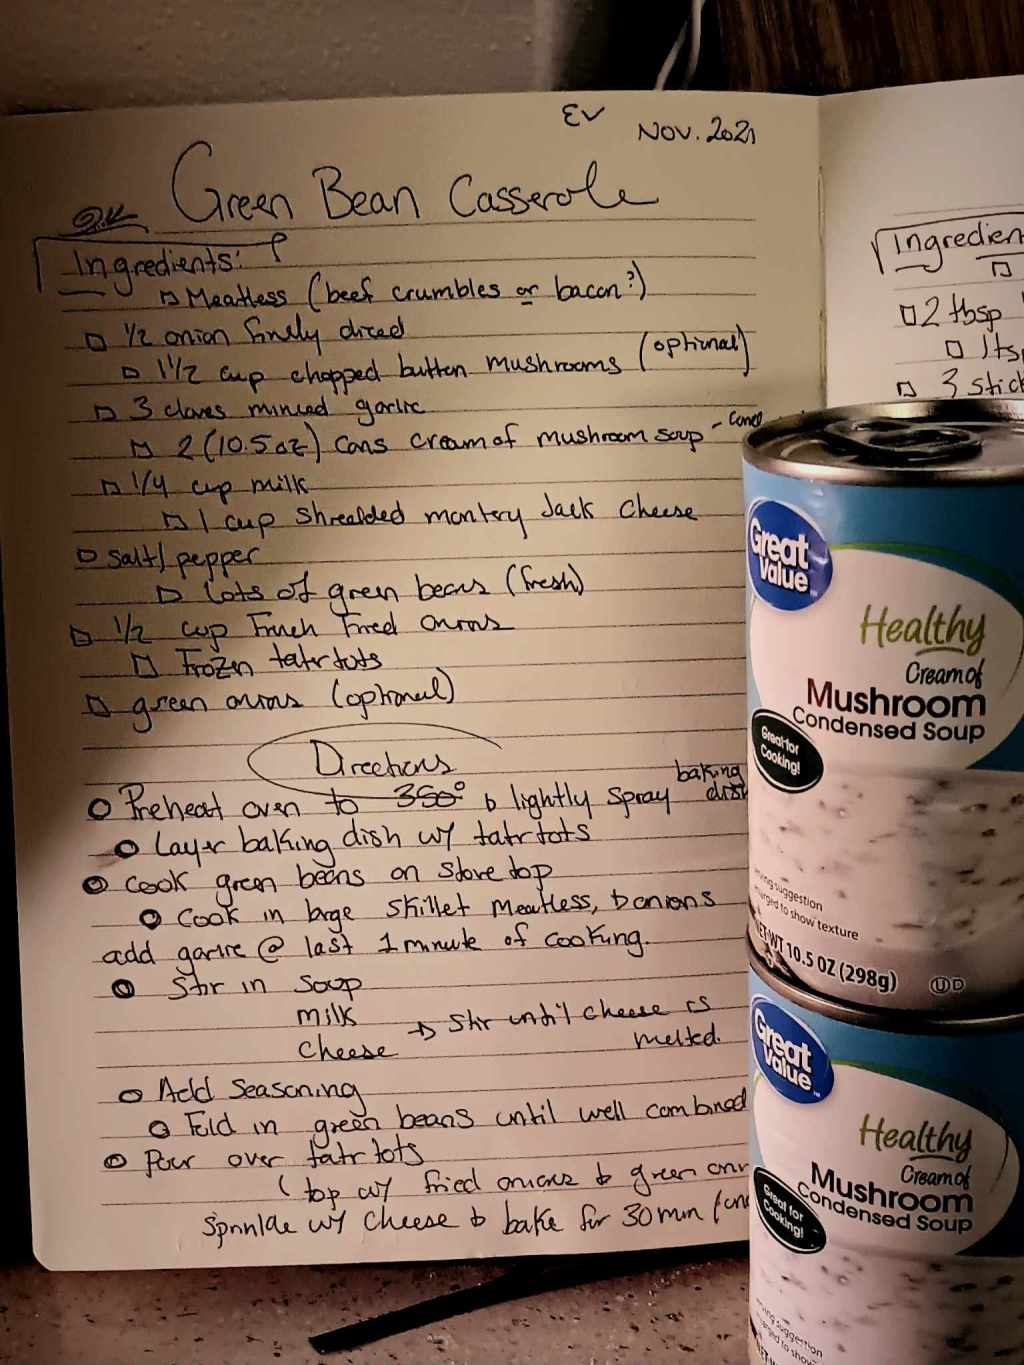 EV
NOV. 2021
Green Bean Casserole
Ingredients:
Meatless (beef crumbles or bacon?)
1/2 onion finely diced
1 1/2 cup chopped button mushrooms (optional)
3 cloves minced garlic
2 (10.5 oz) cans cream of mushroom soup -
1/4 cup milk
1 cup shredded montery Jack Cheese
Salt/pepper
Lots of green beans (fresh)
1/2 cup French Fried onions
Frozen tatr tots
green onions (optional)
Directions
Preheat oven to 350° & lightly spray baking dish
Layer baking dish w/ tatr tots
Cook green beans on stove top
Cook in large skillet meatless, & onions
add garlic @ last 1 minute of cooking.
Stir in soup
milk
cheese → Stir until cheese is melted.
Add Seasoning
Fold in green beans until well combined
Pour over tatr tots
(top w/ fried onions & green
Sprinkle w/ cheese & bake for 30 min
Ingredien
2 tbsp
1 tsp
3 stick
Great Value
Healthy
Cream of
Mushroom
Condensed Soup
Great for Cooking!
serving suggestion
enlarged to show texture
NET WT 10.5 OZ (298g)
U D
Great Value
Healthy
Cream of
Mushroom
Condensed Soup
Great for Cooking!
serving suggestion